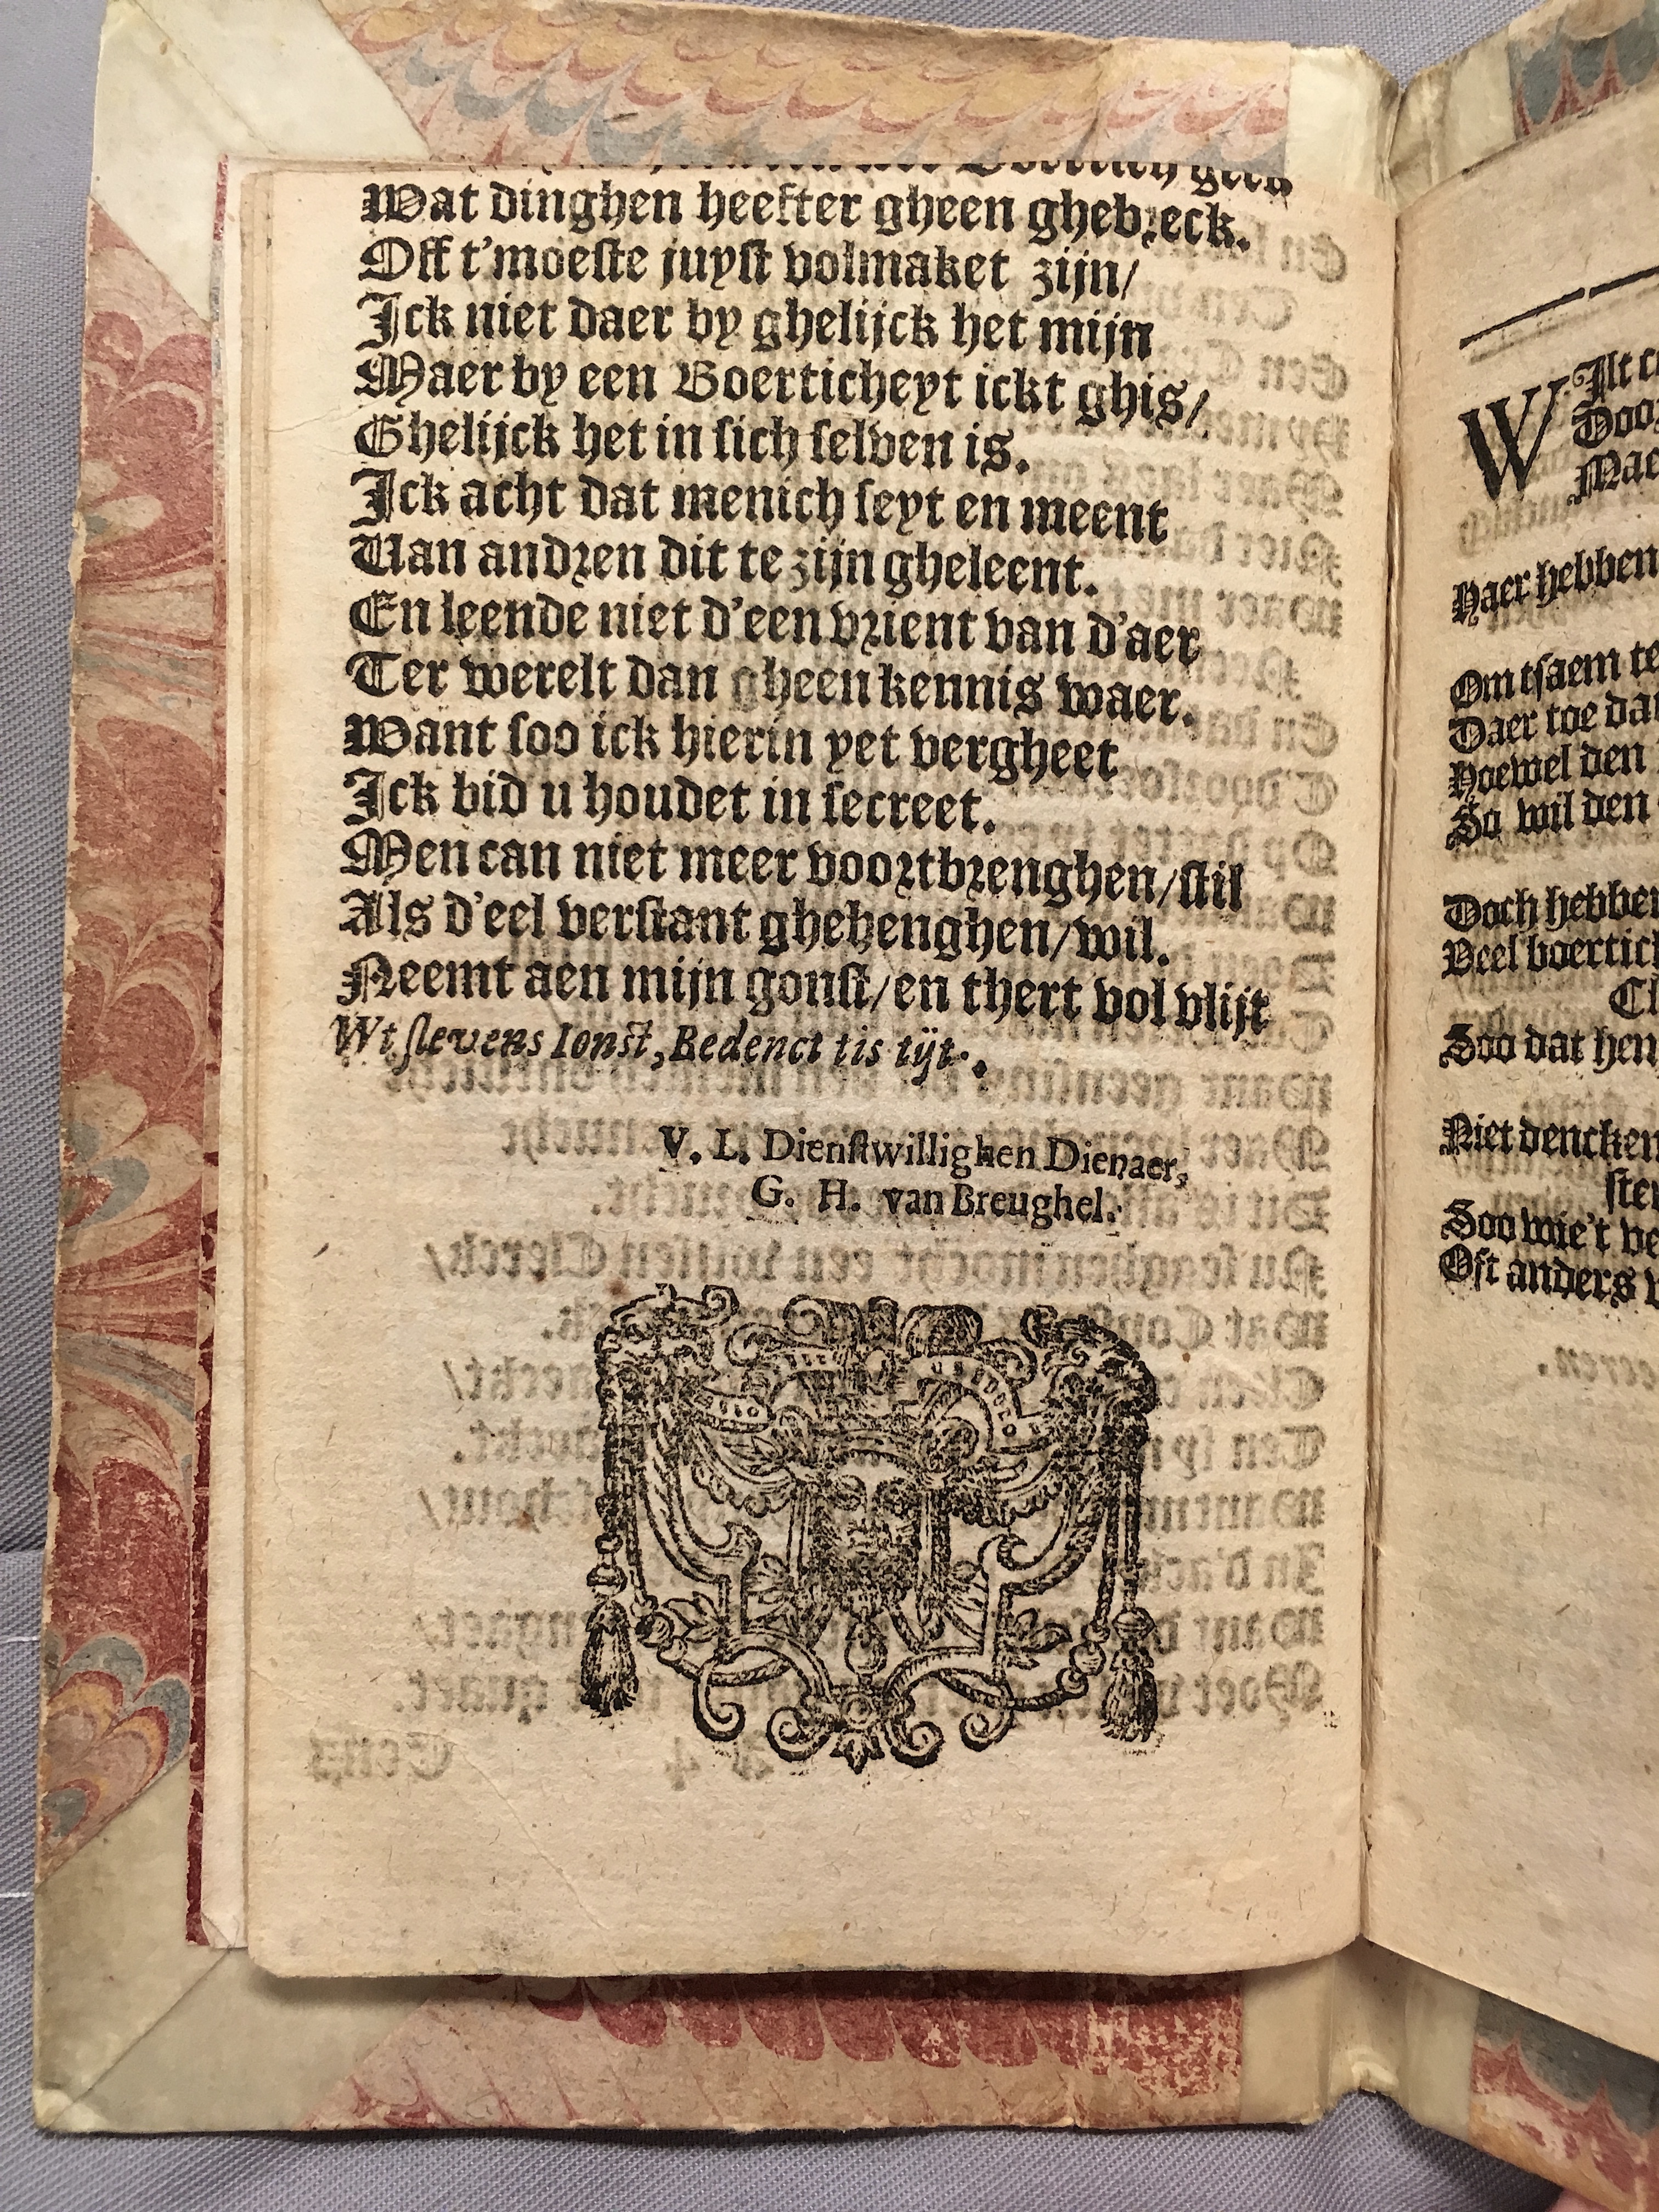 Boertich geen
Wat dinghen heefter gheen ghebreck.
Off t'moeste juyst volmaket zijn/
Ick niet daer by ghelijck het mijn
Maer by een Boerticheyt ickt ghis/
Ghelijck het in sich selven is.
Ick acht dat menich seyt en meent
Van andren dit te zijn gheleent.
En leende niet d'een vrient van d'aer
Ter werelt dan gheen kennis waer.
Want soo ick hierin yet vergheet
Ick bid u houdet in secreet.
Men can niet meer voortbrenghen/stil
Als d'eel verstant ghehenghen/wil.
Neemt aen mijn gonst/en thert vol vlijt
Wt slevens Ionst, Bedenct tis tijt.
V. L. Dienstwillighen Dienaer,
G. H. van Breughel.
Wilt
Door
Mae
Naer hebben
Om tsaem te
Daer toe dat
Hoewel den
So wil den
Doch hebben
Veel boertich
Cl
Soo dat hen
Niet dencken
ster
Soo wie't ve
Oft anders v